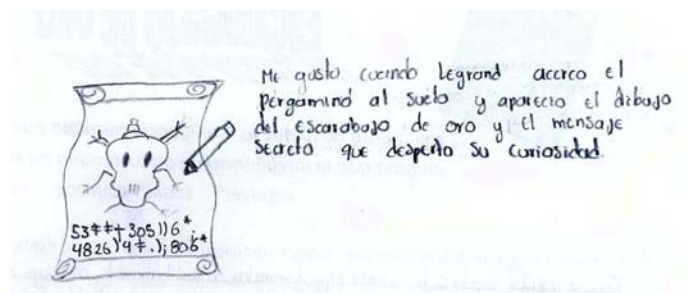 Me gusto cuando Legrand acerco el
pergamino al suelo y aparecio el dibujo
del escarabajo de oro y el mensaje
secreto que desperto su curiosidad.
53‡‡†305))6*;
4826)4‡.);806*